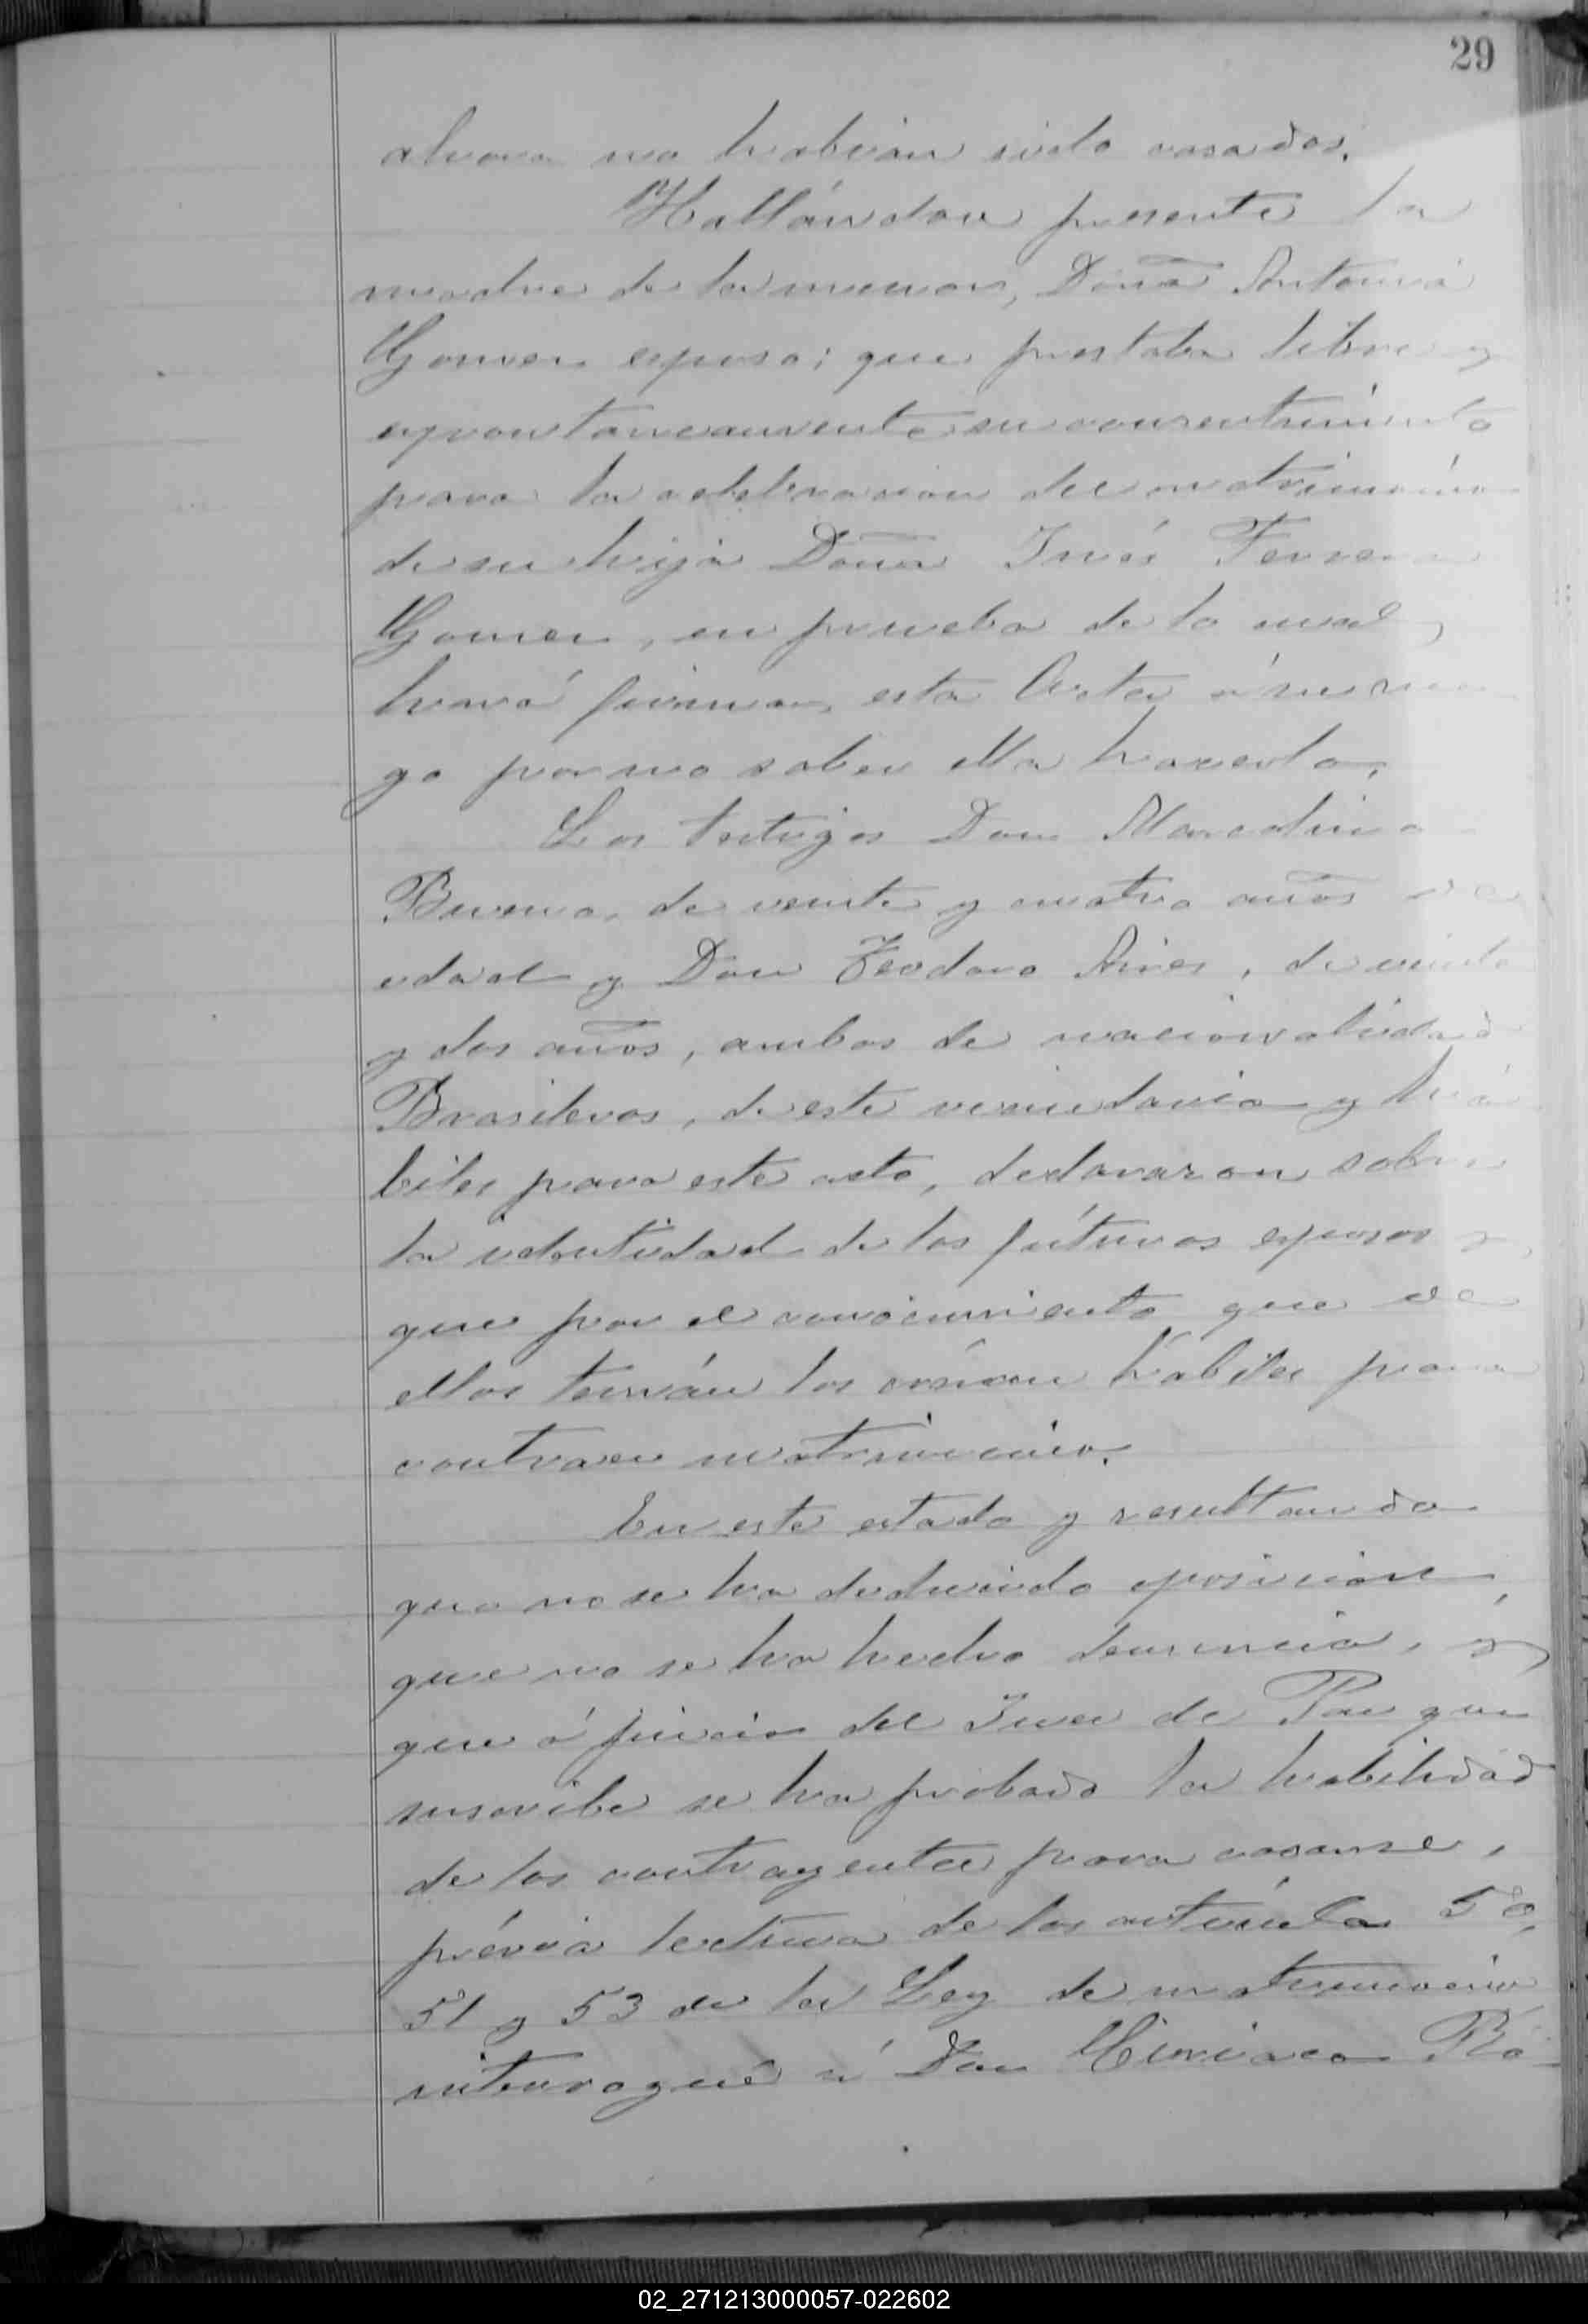 29
ahora no habian sido casados.
Hallándose presente la
madre de la menor, Doña Antonia
Gomez expuso; que prestaba libre y
expontaneamente su consentimiento
para la celebracion del matrimonio
de su hija Doña Inés Ferrera
Gomez, en prueba de lo cual,
hará firmar esta Acta á su rue
go por no saber ella hacerlo.
Los testigos Don Marcelino
Bueno, de veinte y cuatro años de
edad y Don Teodoro Aires, de veinte
y dos años, ambos de nacionalidad
Brasileros, de este vecindario y há
biles para este acto, declararon sobre
la identidad de los fúturos esposos y
que por el conocimiento que de
ellos tenián los creian hábiles para
contraer matrimonio.
En este estado y resultando
que no se ha deducido oposicion,
que no se ha hecho denuncia, y
que á juicio del Juez de Paz que
suscribe se ha probado la habilidad
de los contrayentes para casarse,
prévia lectura de los articulos 50,
51 y 53 de la Ley de matrimonio
interrogué á Don Ciriaco Ró-
02_271213000057-022602